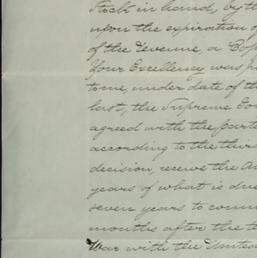 Stock in hand, by th
upon the expiration o
of the Decenne, a Cop
Your Excellency was p
to me, under date of th
last, the Supreme Gov
agreed with the parte
according to the thir
decision, receive the a
years of what is due
seven years to comm
months after the te
War with the United